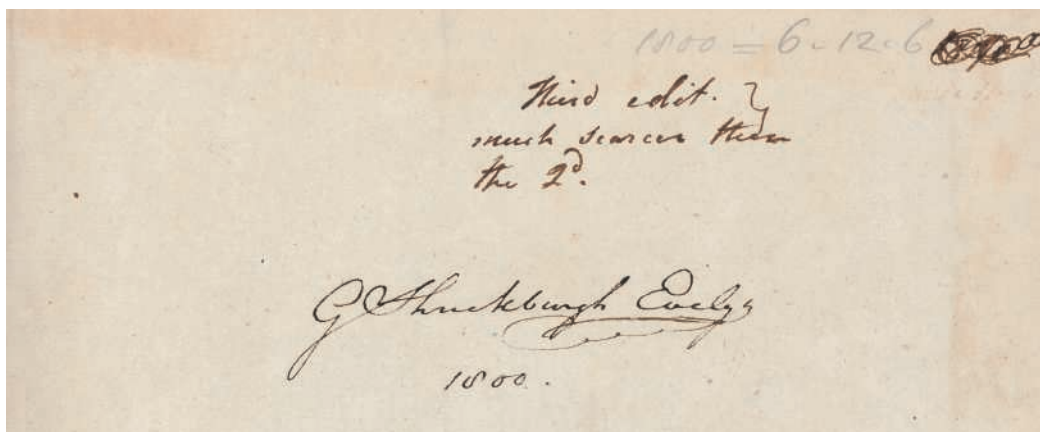 1800 = 6.12.6
Third edit. }
much scarcer than
the 2d.
G Shuckburgh Evelyn
1800.